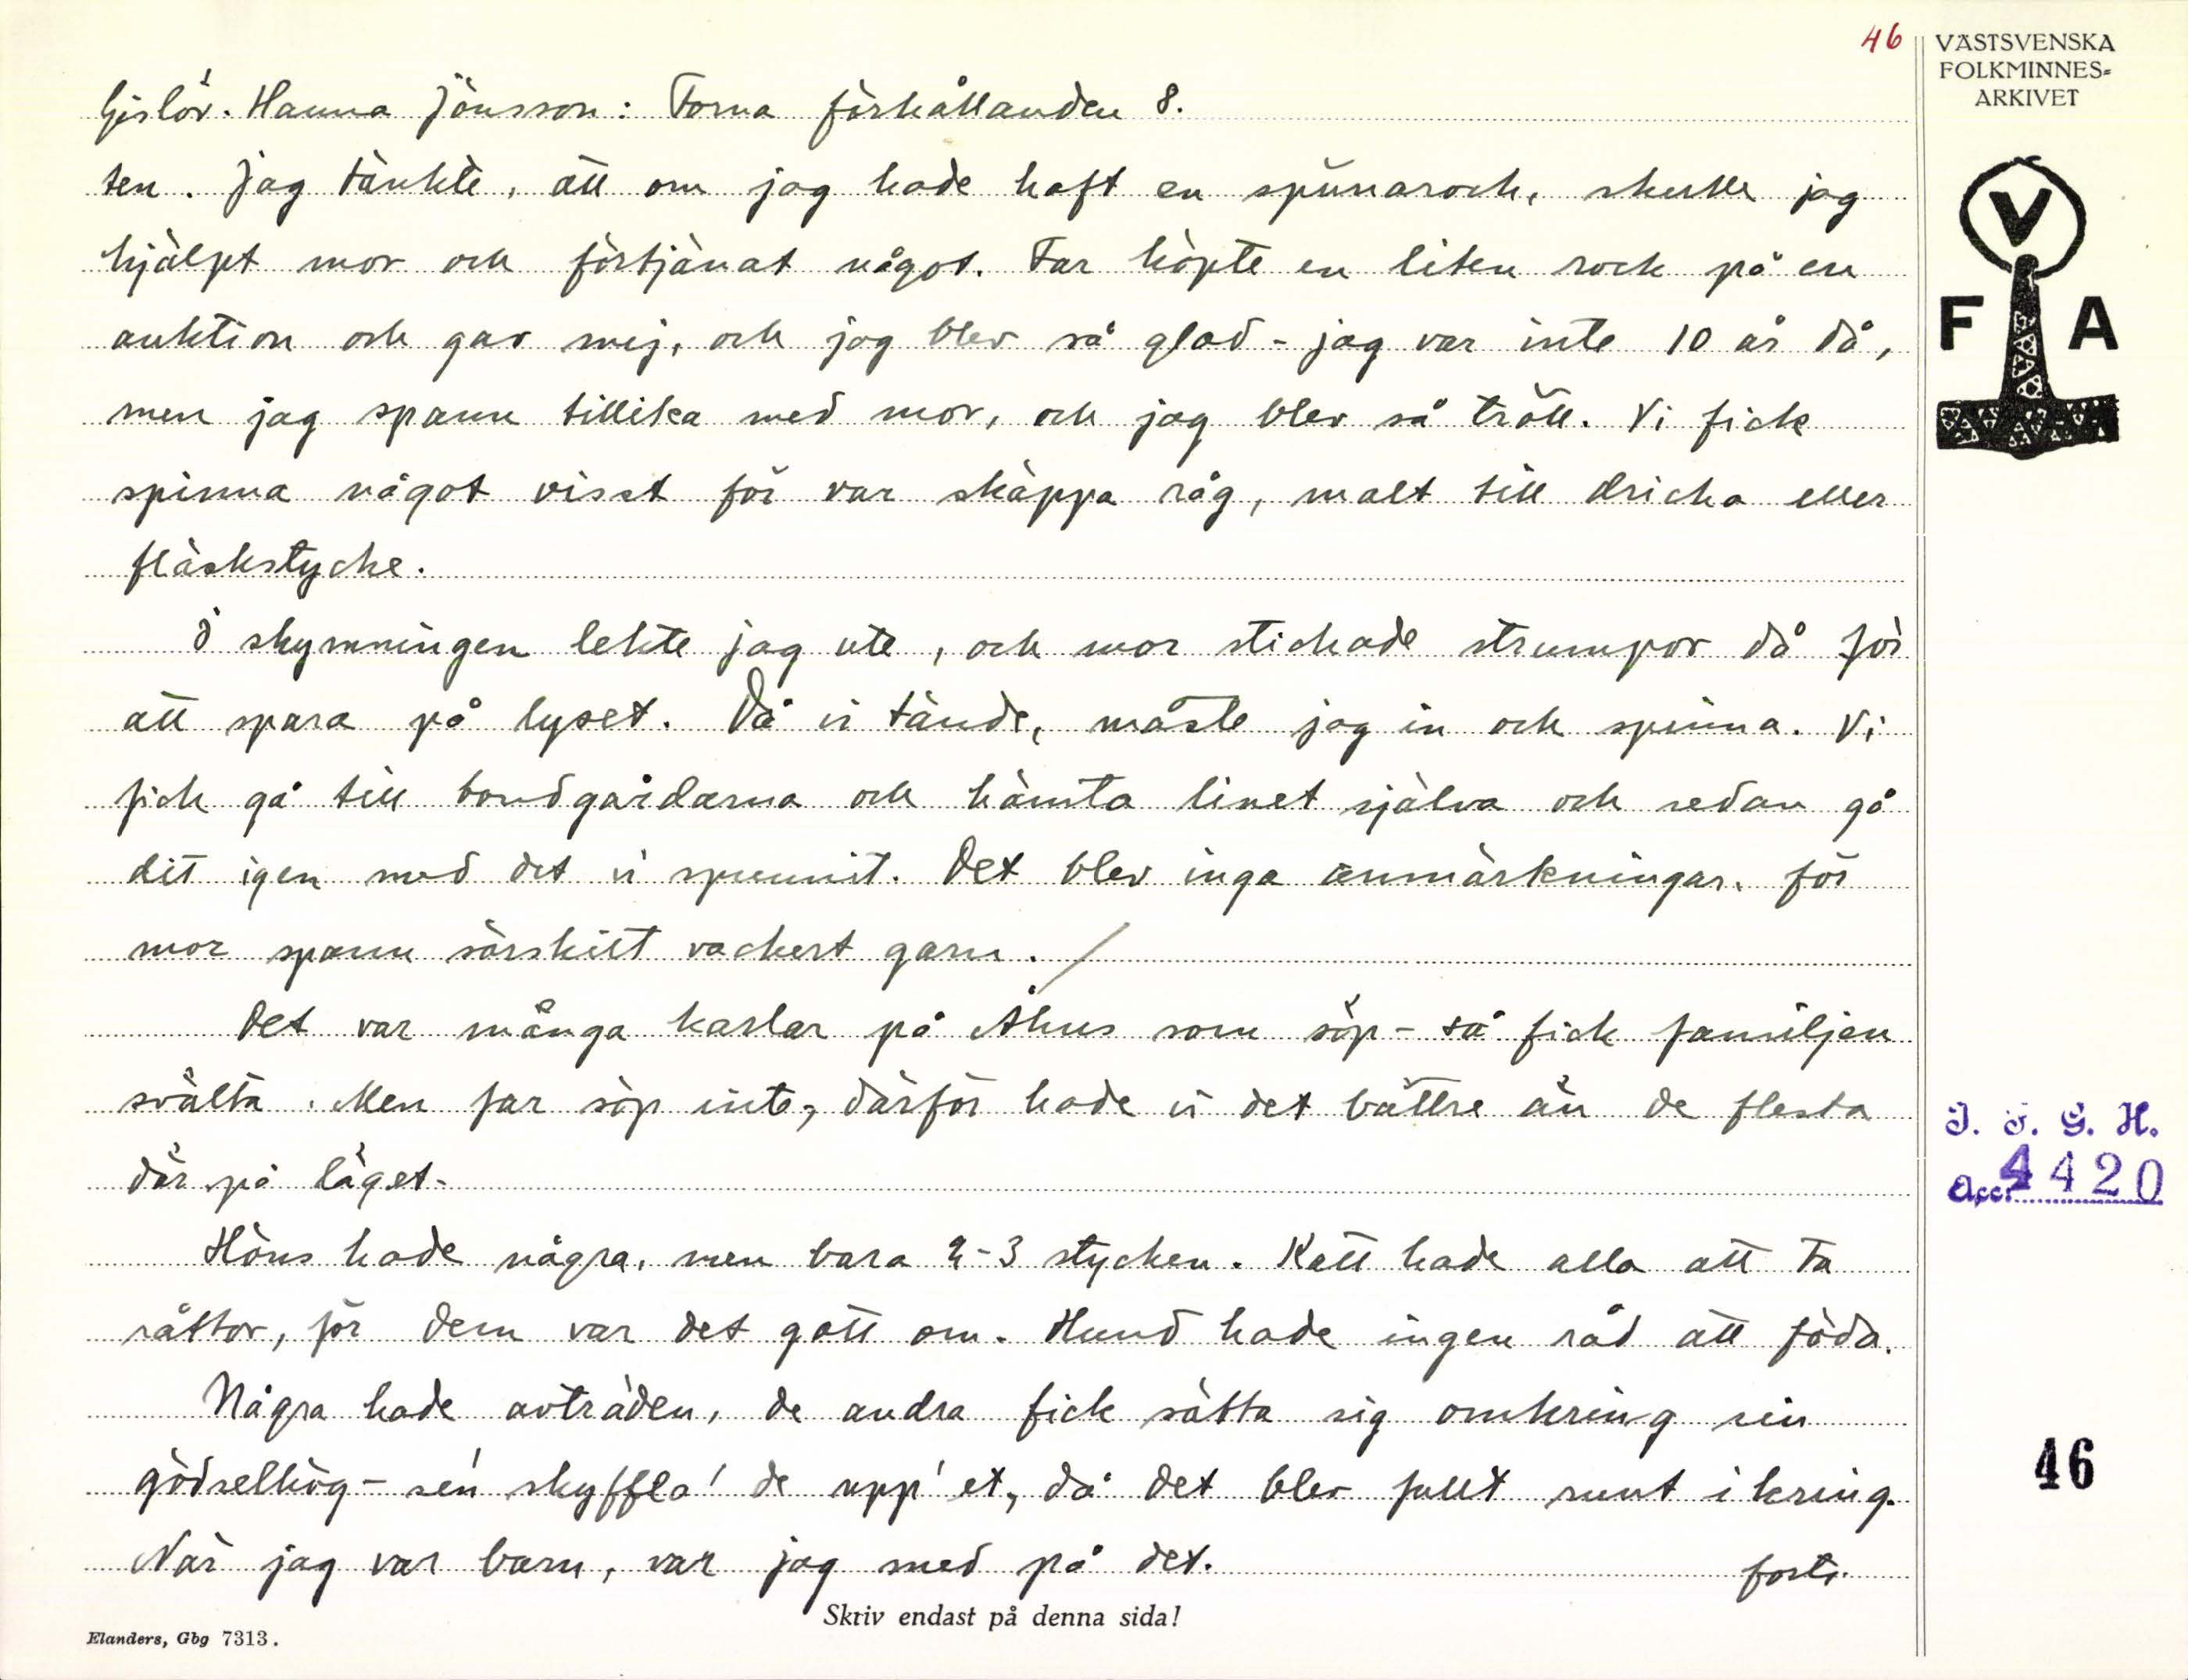 46
VÄSTSVENSKA
FOLKMINNES-
ARKIVET
Gislöv. Hanna Jönsson: Forna förhållanden 8.
ten. Jag tänkte, att om jag hade haft en spinnarock, skulle jag
hjälpt mor och förtjänat något. Far köpte en liten rock på en
auktion och gav mig, och jag blev så glad - jag var inte 10 år då,
men jag spann tillika med mor, och jag blev så trött. Vi fick
spinna något visst för var skäppa råg, malt till dricka eller
fläskstycke.
I skymningen lekte jag ute, och mor stickade strumpor då för
att spara på lyset. Då vi tände, måste jag in och spinna. Vi
fick gå till bondgårdarna och hämta linet själva och sedan gå
dit igen med det vi spunnit. Det blev inga anmärkningar, för
mor spann särskilt vackert garn. /
Det var många karlar på Åhus som söp - så fick familjen
svälta. Men far söp inte, därför hade vi det bättre än de flesta
där på läget.
Höns hade några, men bara 2-3 stycken. Katt hade alla att ta
råttor, för dem var det gott om. Hund hade ingen råd att föda.
Några hade avträden, de andra fick sätta sig omkring sin
gödselhög - sén skyffla' de upp'et, då det blev fullt runt ikring.
När jag var barn, var jag med på det.
forts.
V
F A
I. F. G. H.
Acc. 4420
46
Skriv endast på denna sida!
Elanders, Gbg 7313.